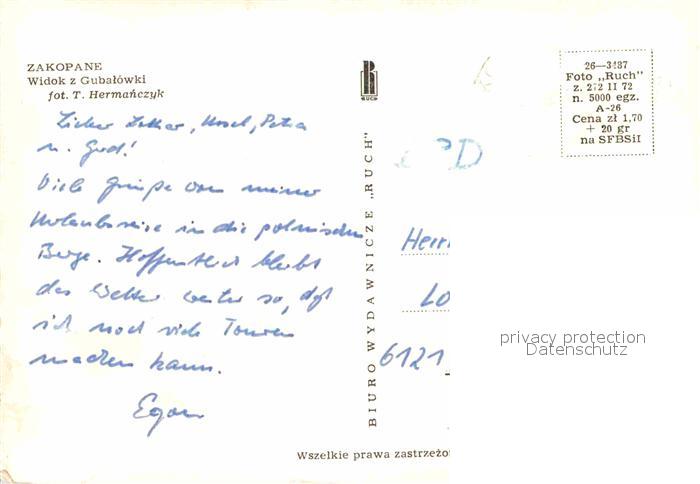 ZAKOPANE
Widok z Gubałówki
fot. T. Hermańczyk
Lieber Lothar, Ursel, Petra
u. Gerd!
Viele Grüße von meiner
Urlaubsreise in die polnischen
Berge. Hoffentlich bleibt
das Wetter weiter so, daß
ich noch viele Touren
machen kann.
Egon
RUCH
BIURO WYDAWNICZE „RUCH"
26—3487
Foto „Ruch"
z. 272 II 72
n. 5000 egz.
A-26
Cena zł 1,70
+ 20 gr
na SFBSiI
D
Herr
Lo
6121
privacy protection
Datenschutz
Wszelkie prawa zastrzeżo